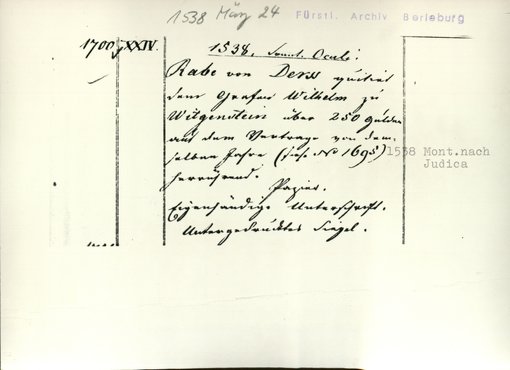 1538 März 24
Fürstl. Archiv Berleburg
1700, XXIV.
1538. Sonnt. Oculi.
Rabe von Derss quitirt
dem Grafen Wilhelm zu
Witgenstein über 250 Gulden
auf dem Vertrage von dem-
selben Jahre (sehe No 1695)
herrührend.
1538 Mont.nach
Judica
Papier.
Eigenhändige Unterschrift.
Untergedrucktes Siegel.